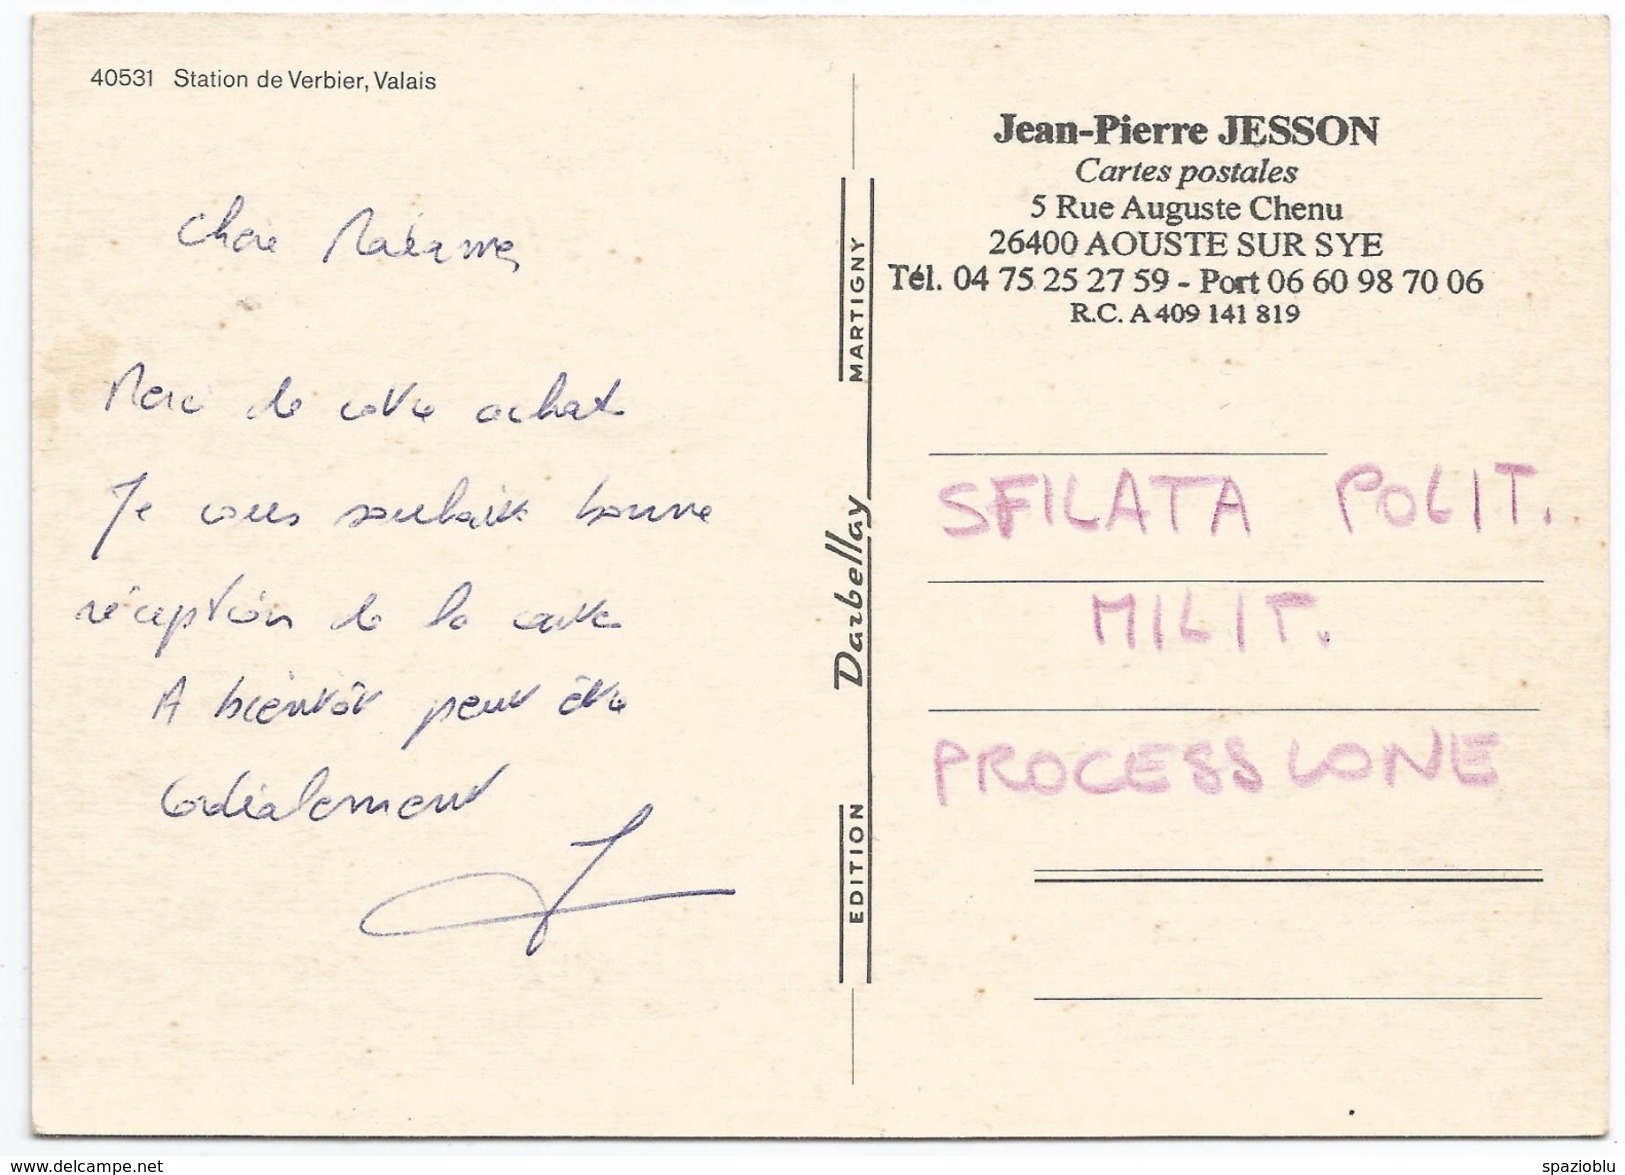 40531 Station de Verbier, Valais
Chère Madame,
Merci de votre achat
Je vous souhaite bonne
réception de la carte
A bientôt peut être
Cordialement
MARTIGNY
Darbellay
EDITION
Jean-Pierre JESSON
Cartes postales
5 Rue Auguste Chenu
26400 AOUSTE SUR SYE
Tél. 04 75 25 27 59 - Port 06 60 98 70 06
R.C. A 409 141 819
SFILATA POLIT.
MILIT.
PROCESSIONE
www.delcampe.net
spazioblu